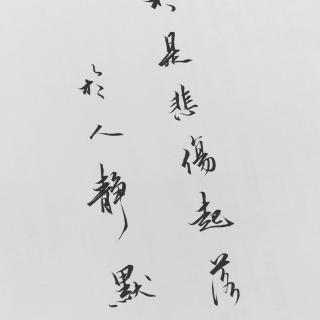 於是悲傷起落
於人靜默